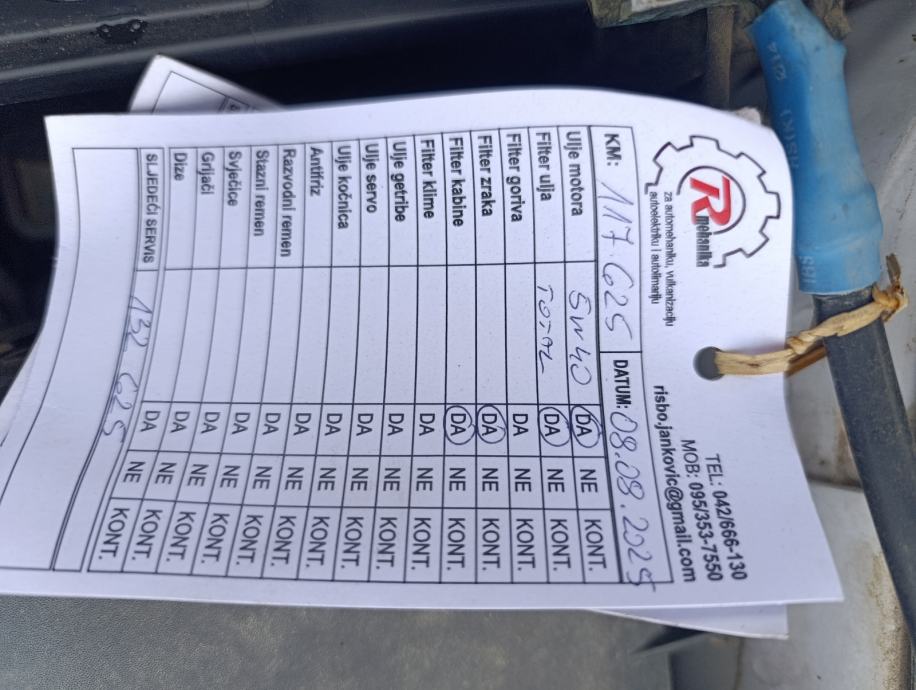 R mehanika
za automehaniku, vulkanizaciju
autoelektriku i autolimariju
TEL: 042/666-130
MOB: 095/353-7550
risbo.jankovic@gmail.com
KM: 117.625 DATUM: 08.08.2025
Ulje motora 5W40 DA NE KONT.
Filter ulja TOTAL DA NE KONT.
Filter goriva DA NE KONT.
Filter zraka DA NE KONT.
Filter kabine DA NE KONT.
Filter klime DA NE KONT.
Ulje getribe DA NE KONT.
Ulje servo DA NE KONT.
Ulje kočnica DA NE KONT.
Antifriz DA NE KONT.
Razvodni remen DA NE KONT.
Stazni remen DA NE KONT.
Svječice DA NE KONT.
Grijači DA NE KONT.
Dize DA NE KONT.
DA NE KONT.
SLJEDEĆI SERVIS 132 625